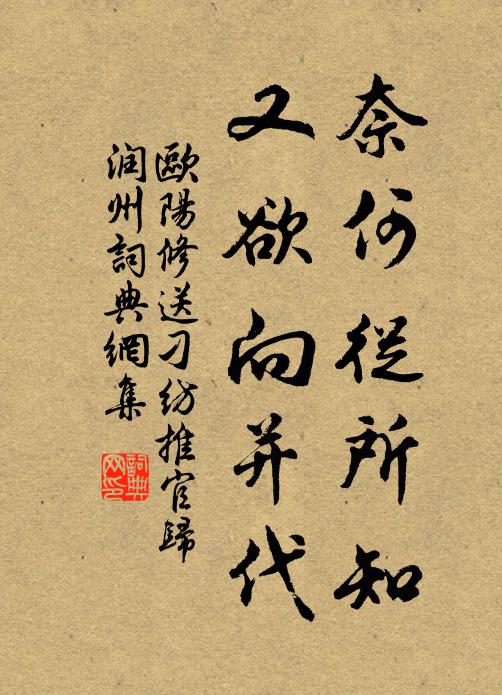 奈何從所知
又欲向并代
歐陽修送刁紡推官歸
润州詞典網集
詞典网印